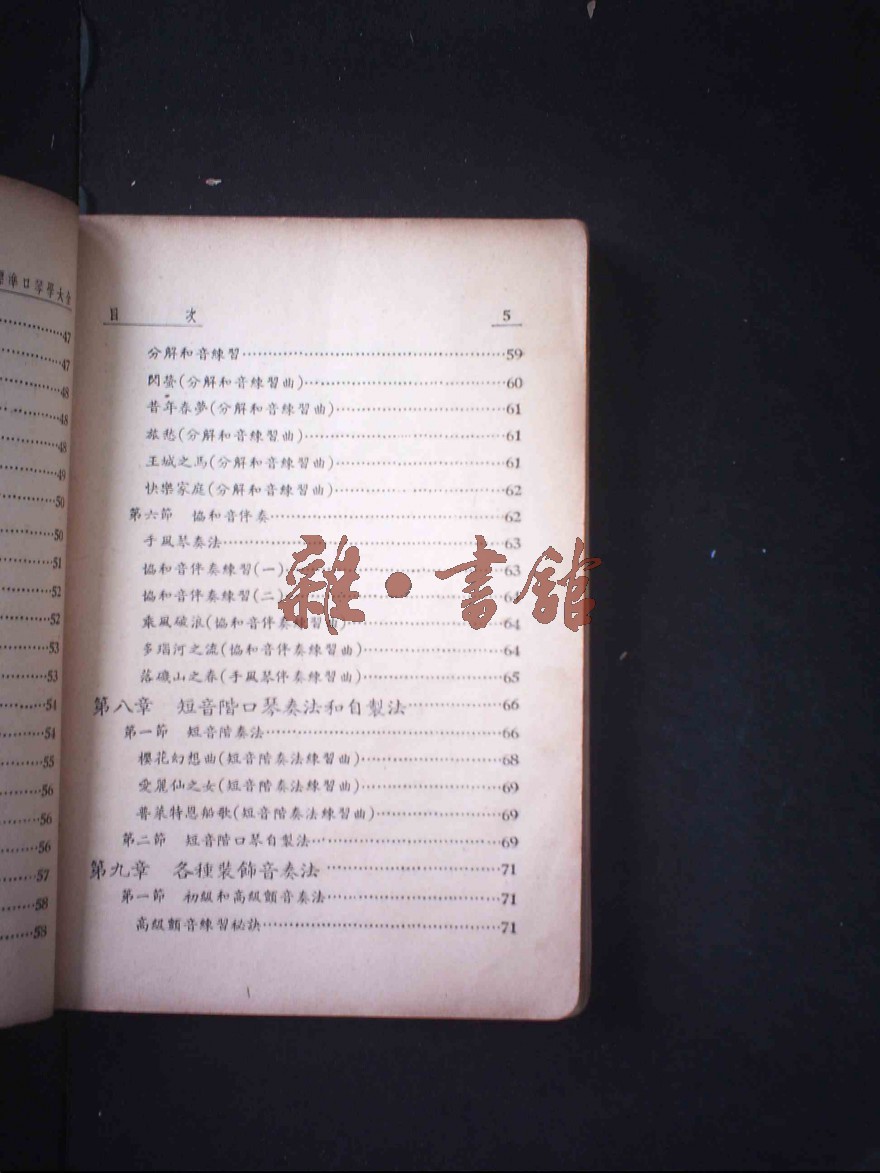 標準口琴學大全
47
47
48
48
48
49
50
50
51
52
52
53
53
54
54
55
56
56
56
57
58
58
目 次 5
分解和音練習 59
閃螢(分解和音練習曲) 60
昔年春夢(分解和音練習曲) 61
旅愁(分解和音練習曲) 61
王城之馬(分解和音練習曲) 61
快樂家庭(分解和音練習曲) 62
第六節 協和音伴奏 62
手風琴奏法 63
協和音伴奏練習(一) 63
協和音伴奏練習(二)
乘風破浪(協和音伴奏練習曲) 64
多瑙河之流(協和音伴奏練習曲) 64
落磯山之春(手風琴伴奏練習曲) 65
第八章 短音階口琴奏法和自製法 66
第一節 短音階奏法 66
櫻花幻想曲(短音階奏法練習曲) 68
愛麗仙之女(短音階奏法練習曲) 69
普萊特恩船歌(短音階奏法練習曲) 69
第二節 短音階口琴自製法 69
第九章 各種裝飾音奏法 71
第一節 初級和高級顫音奏法 71
高級顫音練習秘訣 71
雜·書館